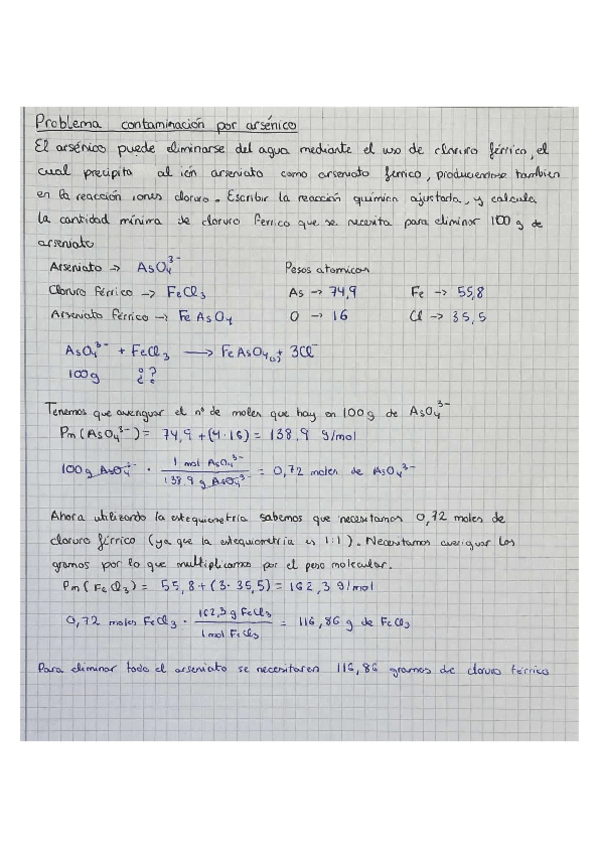 Problema contaminación por arsénico
El arsénico puede eliminarse del agua mediante el uso de cloruro férrico, el
cual precipita al ión arseniato como arseniato férrico, produciendose tambien
en la reacción iones cloruro. Escribir la reacción química ajustada, y calcula
la cantidad mínima de cloruro ferrico que se necesita para eliminar 100 g de
arseniato
Arseniato -> AsO₄³⁻ Pesos atomicos
Cloruro férrico -> FeCl₃ As -> 74,9 Fe -> 55,8
Arseniato férrico -> FeAsO₄ O -> 16 Cl -> 35,5
AsO₄³⁻ + FeCl₃ ⟶ FeAsO₄(s) + 3Cl⁻
100g ¿?
Tenemos que averiguar el nº de moles que hay en 100 g de AsO₄³⁻
Pm (AsO₄³⁻) = 74,9 + (4·16) = 138,9 g/mol
100 g AsO₄³⁻ · 1 mol AsO₄³⁻ / 138,9 g AsO₄³⁻ = 0,72 moles de AsO₄³⁻
Ahora utilizando la estequiometría sabemos que necesitamos 0,72 moles de
cloruro férrico (ya que la estequiometría es 1:1). Necesitamos averiguar los
gramos por lo que multiplicamos por el peso molecular.
Pm (FeCl₃) = 55,8 + (3·35,5) = 162,3 g/mol
0,72 moles FeCl₃ · 162,3 g FeCl₃ / 1 mol FeCl₃ = 116,86 g de FeCl₃
Para eliminar todo el arseniato se necesitaren 116,86 gramos de cloruro férrico